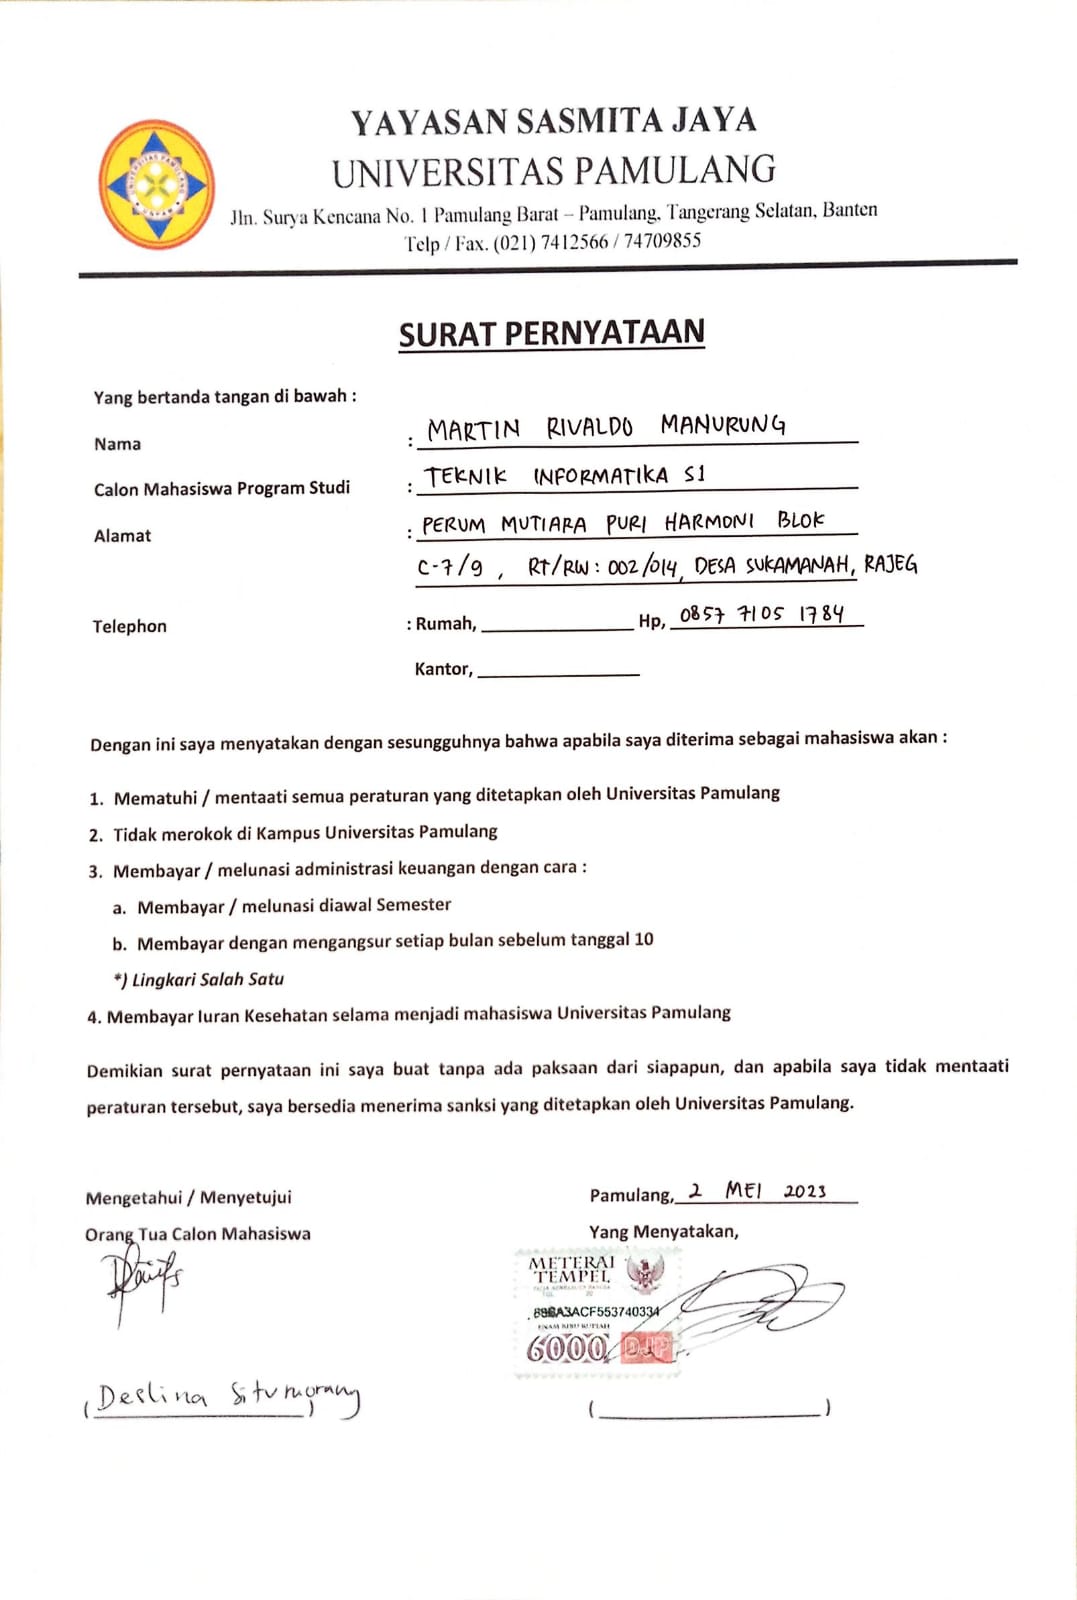 YAYASAN SASMITA JAYA
UNIVERSITAS PAMULANG
Jln. Surya Kencana No. 1 Pamulang Barat – Pamulang, Tangerang Selatan, Banten
Telp / Fax. (021) 7412566 / 74709855
UNIVERSITAS PAMULANG
UNPAM
SURAT PERNYATAAN
Yang bertanda tangan di bawah :
Nama : MARTIN RIVALDO MANURUNG
Calon Mahasiswa Program Studi : TEKNIK INFORMATIKA S1
Alamat : PERUM MUTIARA PURI HARMONI BLOK
C-7/9 , RT/RW : 002/014, DESA SUKAMANAH, RAJEG
Telephon : Rumah, Hp, 0857 7105 1784
Kantor,
Dengan ini saya menyatakan dengan sesungguhnya bahwa apabila saya diterima sebagai mahasiswa akan :
1. Mematuhi / mentaati semua peraturan yang ditetapkan oleh Universitas Pamulang
2. Tidak merokok di Kampus Universitas Pamulang
3. Membayar / melunasi administrasi keuangan dengan cara :
a. Membayar / melunasi diawal Semester
b. Membayar dengan mengangsur setiap bulan sebelum tanggal 10
*) Lingkari Salah Satu
4. Membayar Iuran Kesehatan selama menjadi mahasiswa Universitas Pamulang
Demikian surat pernyataan ini saya buat tanpa ada paksaan dari siapapun, dan apabila saya tidak mentaati
peraturan tersebut, saya bersedia menerima sanksi yang ditetapkan oleh Universitas Pamulang.
Mengetahui / Menyetujui
Orang Tua Calon Mahasiswa
(Deslina Situmorang)
Pamulang, 2 MEI 2023
Yang Menyatakan,
METERAI
TEMPEL
TGL. 20
ENAM RIBU RUPIAH
6000 DJP
( )